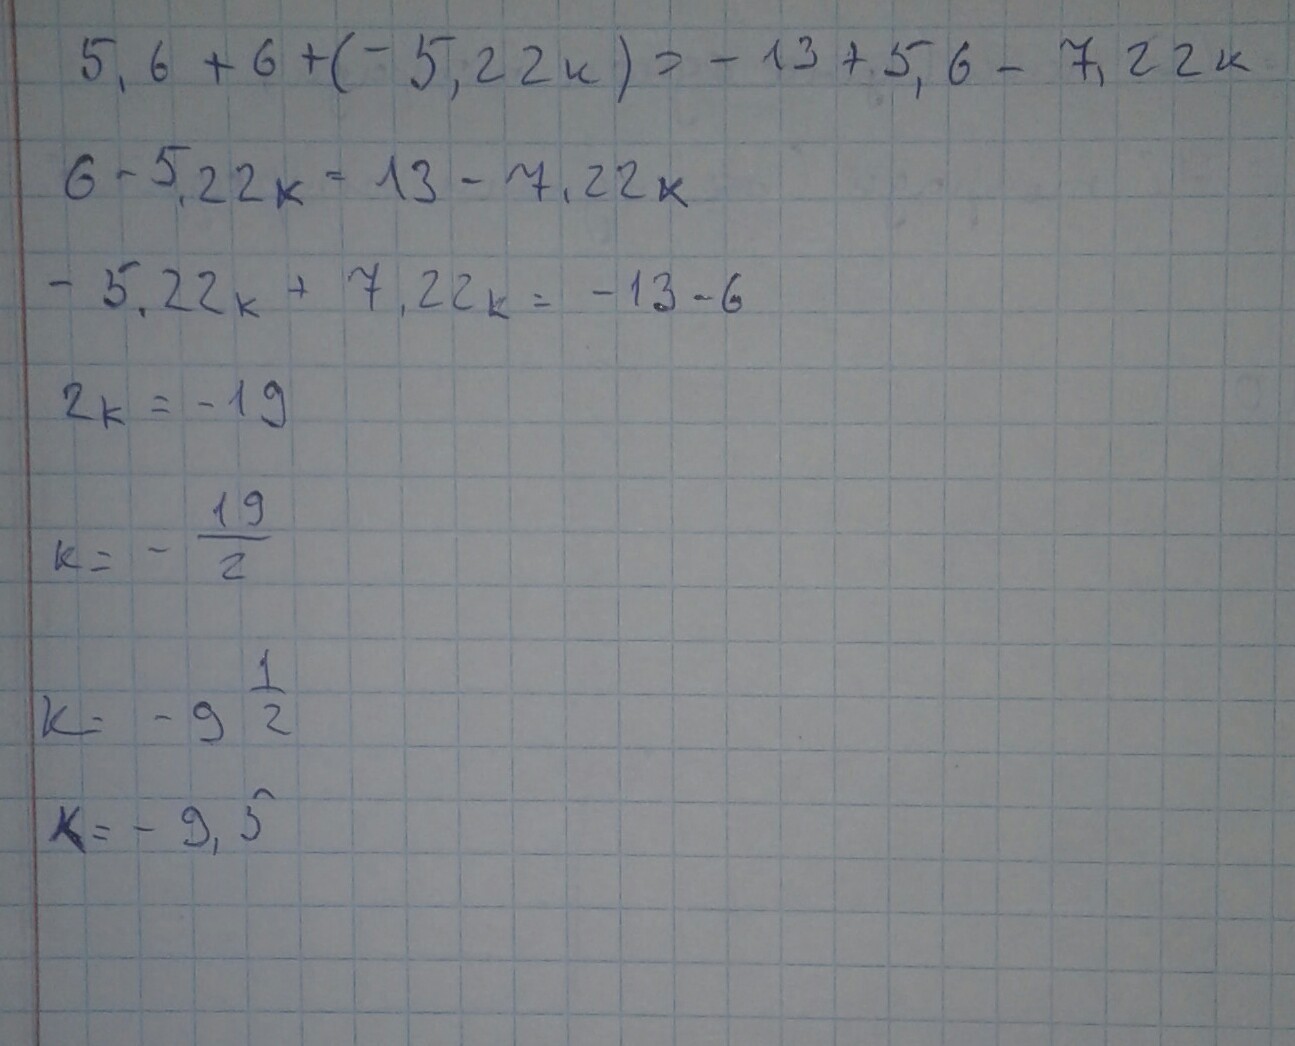 5,6 + 6 + (- 5,22к) = - 13 + 5,6 - 7,22к
6 - 5,22к = 13 - 7,22к
- 5,22к + 7,22к = - 13 - 6
2к = - 19
к = - 19/2
к = - 9 1/2
к = - 9,5